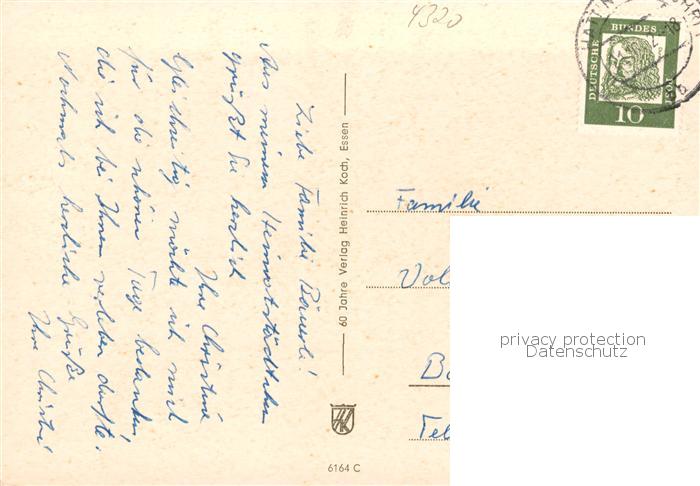 4320
Liebe Familie Bäuerle!
Aus meinem Heimatstädtchen
grüßt Sie herzlich
Ihre Christine
Gleichzeitig möchte ich mich
für die schönen Tage bedanken,
die ich bei Ihnen verleben durfte.
Nochmals herzliche Grüße
Ihre Christine
60 Jahre Verlag Heinrich Koch, Essen
HK
6164 C
DEUTSCHE BUNDESPOST
10
Familie
privacy protection
Datenschutz